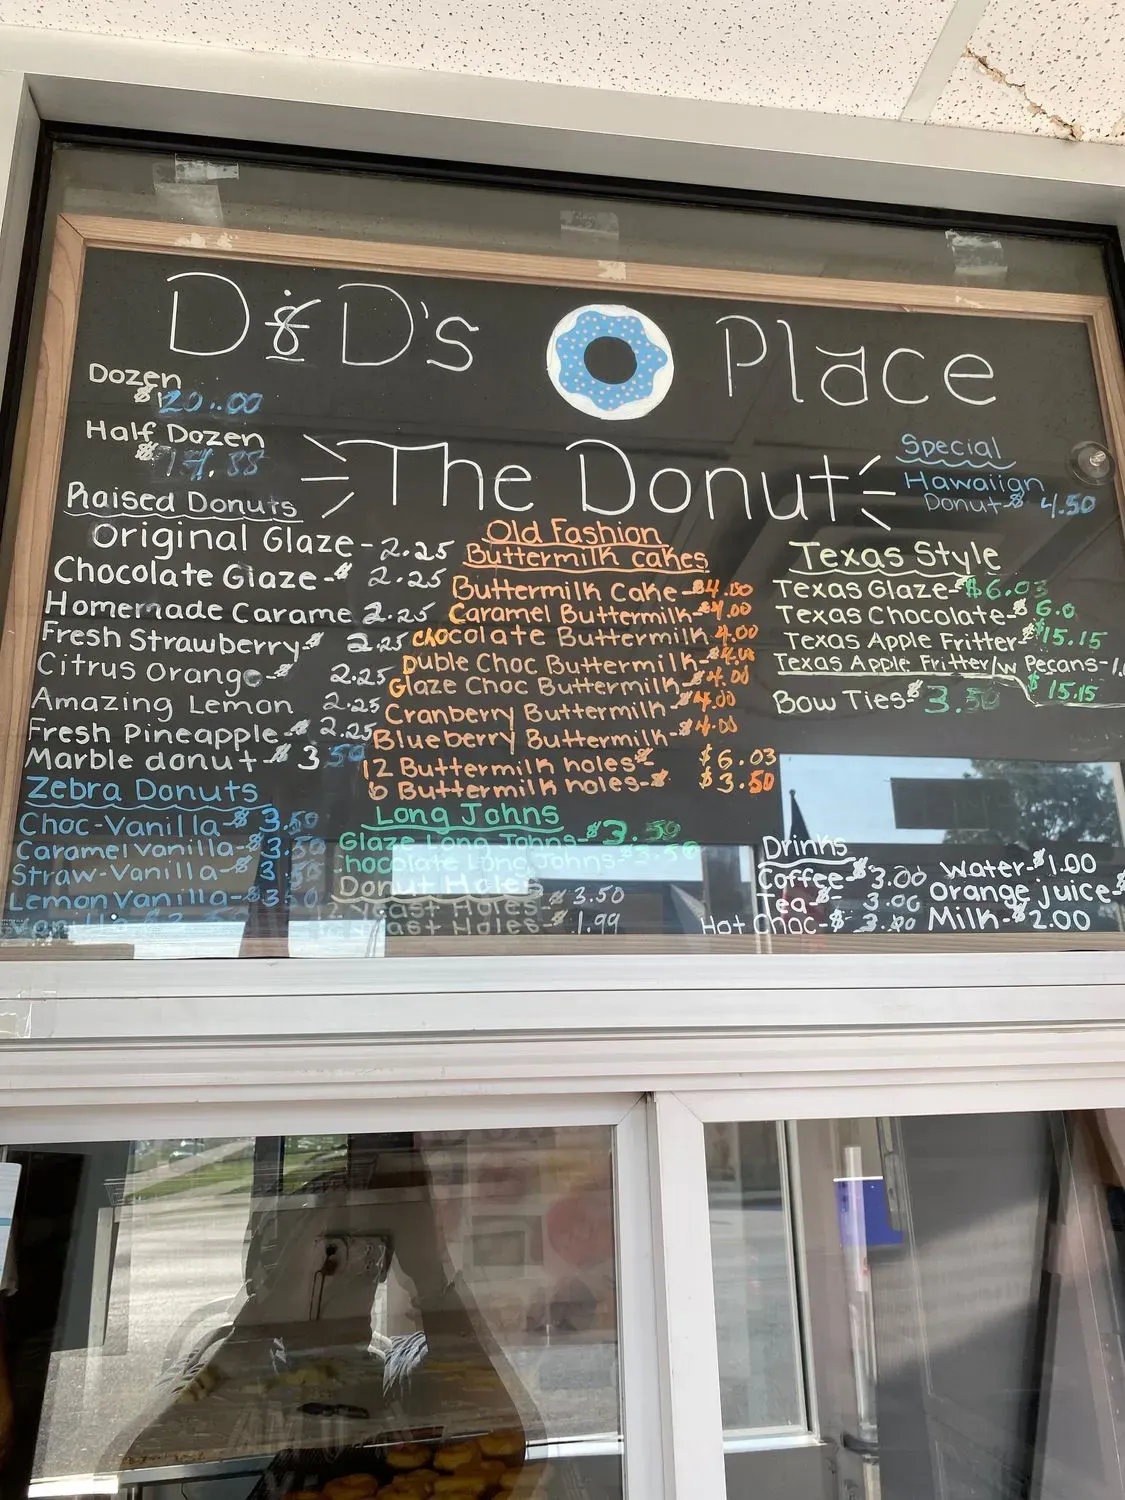 D&D's Place
The Donut
Dozen
$20.00
Half Dozen
$
Special
Hawaiian
Donut-$ 4.50
Raised Donuts
Original Glaze - 2.25
Chocolate Glaze-$ 2.25
Homemade Carame 2.25
Fresh Strawberry-$ 2.25
Citrus Orange-$ 2.25
Amazing Lemon 2.25
Fresh Pineapple-$ 2.25
Marble donut-$ 3.50
Zebra Donuts
Choc-Vanilla-$ 3.50
Caramel Vanilla-$3.50
Straw-Vanilla-$ 3.50
Lemon Vanilla-$3.50
Old Fashion
Buttermilk cakes
Buttermilk Cake-$4.00
Caramel Buttermilk-$4.00
Chocolate Buttermilk 4.00
Duble Choc Buttermilk-$4.00
Glaze Choc Buttermilk-$4.00
Cranberry Buttermilk-$4.00
Blueberry Buttermilk-$4.00
12 Buttermilk holes-$ $6.03
6 Buttermilk holes-$ $3.50
Long Johns
Glaze Long Johns-$3.50
Chocolate Long Johns-$3.50
Donut Holes
12 Yeast Holes-$ 3.50
Yeast Holes-$ 1.99
Texas Style
Texas Glaze-$6.03
Texas Chocolate-$6.0
Texas Apple Fritter-$15.15
Texas Apple Fritter/w Pecans-
$15.15
Bow Ties-$3.50
Drinks
Coffee-$3.00
Tea-$- 3.00
Hot Choc-$ 3.00
Water-$1.00
Orange juice-$
Milk-$2.00